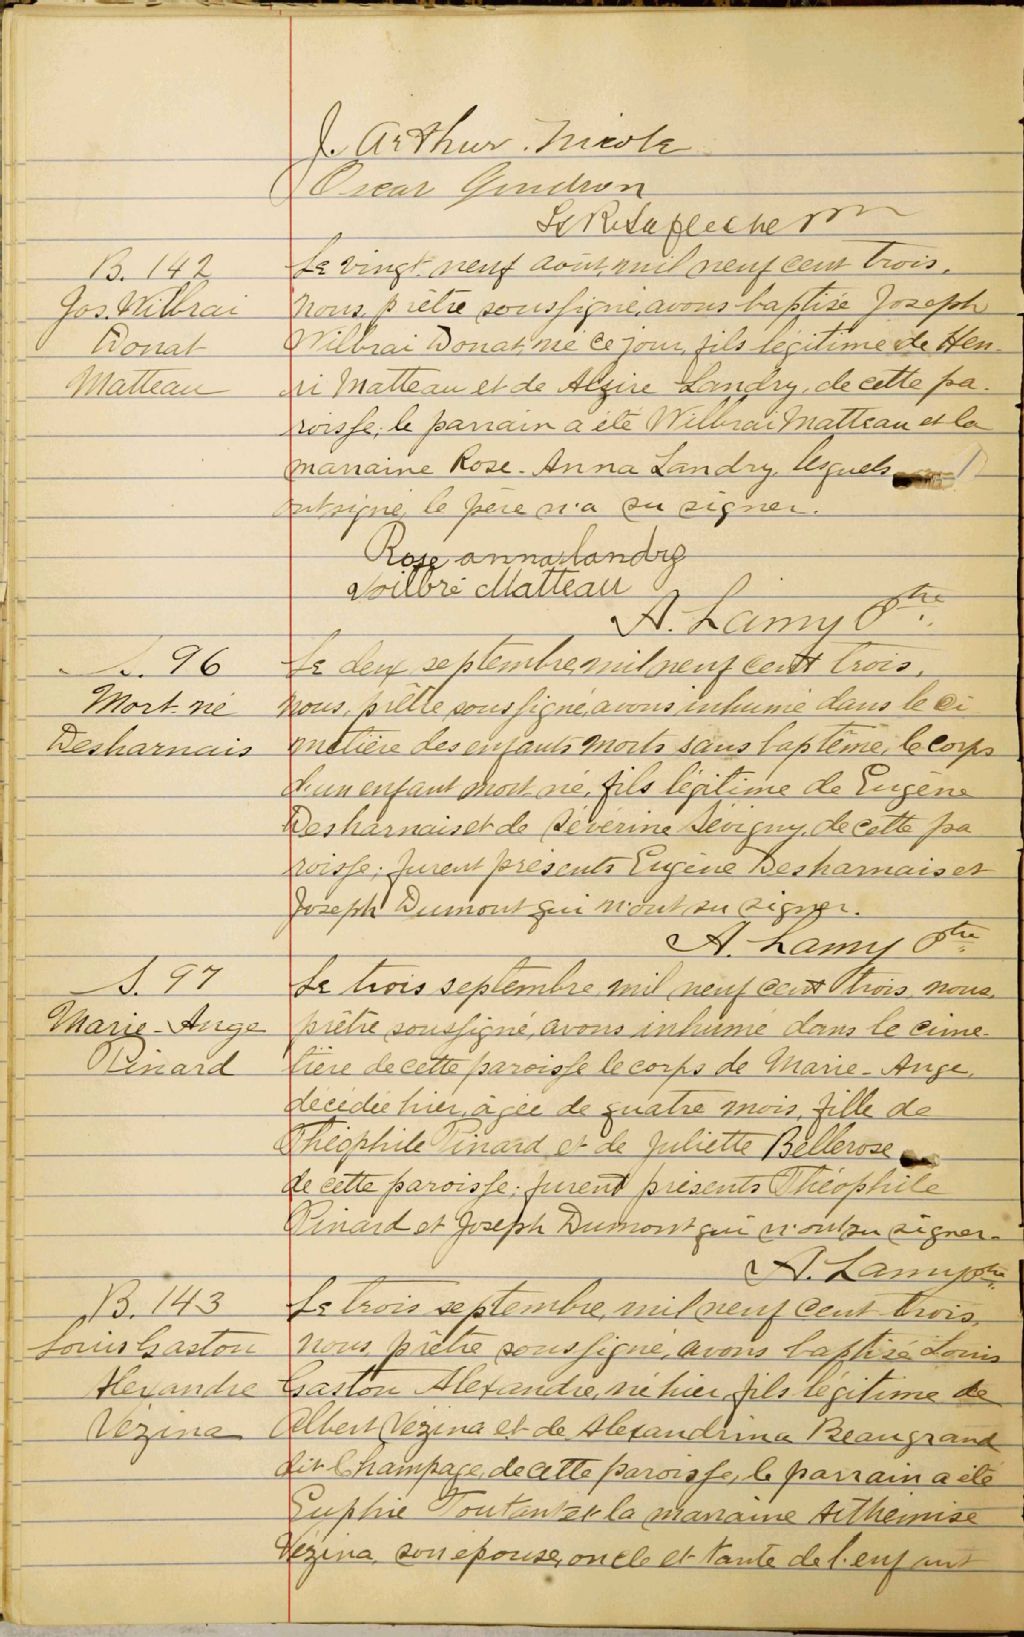 J. Arthur Nicole
Oscar Gendron
Ls R. Lafleche
B. 142
Jos. Wilbrai
Donat
Matteau
Le vingt neuf août mil neuf cent trois,
nous, prêtre soussigné, avons baptisé Joseph
Wilbrai Donat, né ce jour, fils légitime de Hen-
ri Matteau et de Alzire Landry, de cette pa-
roisse; le parrain a été Wilbrai Matteau et la
marraine Rose-Anna Landry, lesquels
ont signé, le père n'a su signer.
Rose anna landry
Wilbré Matteau
A. Lamy Ptre
S. 96
Mort-né
Desharnais
Le deux septembre, mil neuf cent trois,
nous, prêtre soussigné, avons inhumé dans le ci
metière des enfants morts sans baptême, le corps
d'un enfant mort né, fils légitime de Eugène
Desharnais et de Séverine Sévigny, de cette pa
roisse; furent présents Eugène Desharnais et
Joseph Dumont qui n'ont su signer.
A. Lamy Ptre
S. 97
Marie-Ange
Pinard
Le trois septembre mil neuf cent trois, nous,
prêtre soussigné, avons inhumé dans le cime-
tière de cette paroisse le corps de Marie-Ange,
décédée hier, âgée de quatre mois, fille de
Théophile Pinard et de Juliette Bellerose
de cette paroisse; furent présents Théophile
Pinard et Joseph Dumont qui n'ont su signer.
A. Lamy ptre
B. 143
Louis Gaston
Alexandre
Vézina
Le trois septembre, mil neuf cent trois,
nous, prêtre soussigné, avons baptisé Louis
Gaston Alexandre, né hier, fils légitime de
Albert Vézina et de Alexandrina Beaugrand
dit Champage, de cette paroisse, le parrain a été
Euphie Toutant et la marraine Arthémise
Vézina, son épouse, oncle et tante de l'enfant